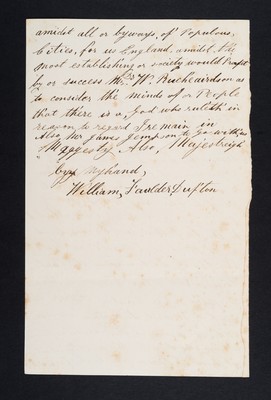 amidst all or byways, of Populous,
Cities, for us England, amidst, the
most establishing or society would Profit
by or success Mrs W. as
to consider the minds of a People
that there is a, God who ruleth in
reason to regard I remain in
Also Mr James to go with us
Maggesty Also, Majestreigh
by Myhand,
William, Faulder Dufton